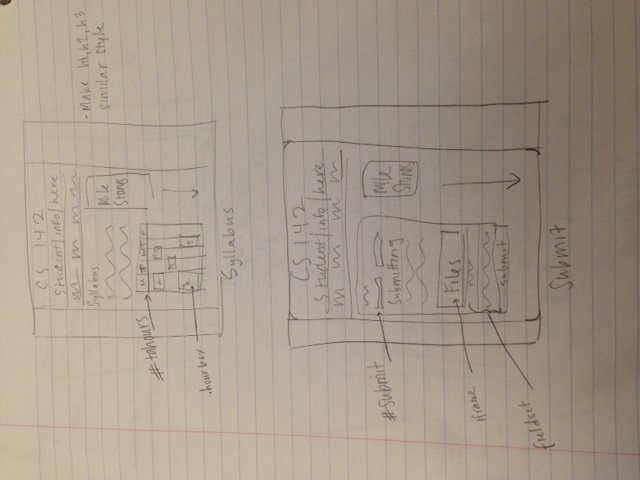 CS 142
Student/info/here
Syllabus
Mile
Stones
- Make h1, h2, h3
similar style
#tahours
M T W T F
.hourbox
Syllabus
CS 142
Student/info/here
#submit
Mile
Stones
Submitting
Files
iframe
fieldset
submit
Submit